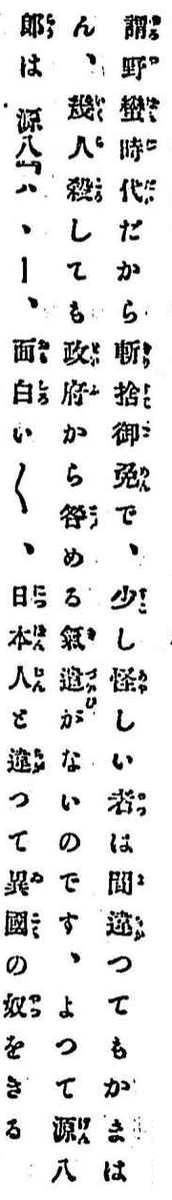 謂野蠻時代だから斬捨御免で、少し怪しい者は間違つてもかまは
ん、幾人殺しても政府から咎める氣遣がないのです、よつて源八
郎は 源八「ハヽー、面白い〱、日本人と違つて異國の奴をきる